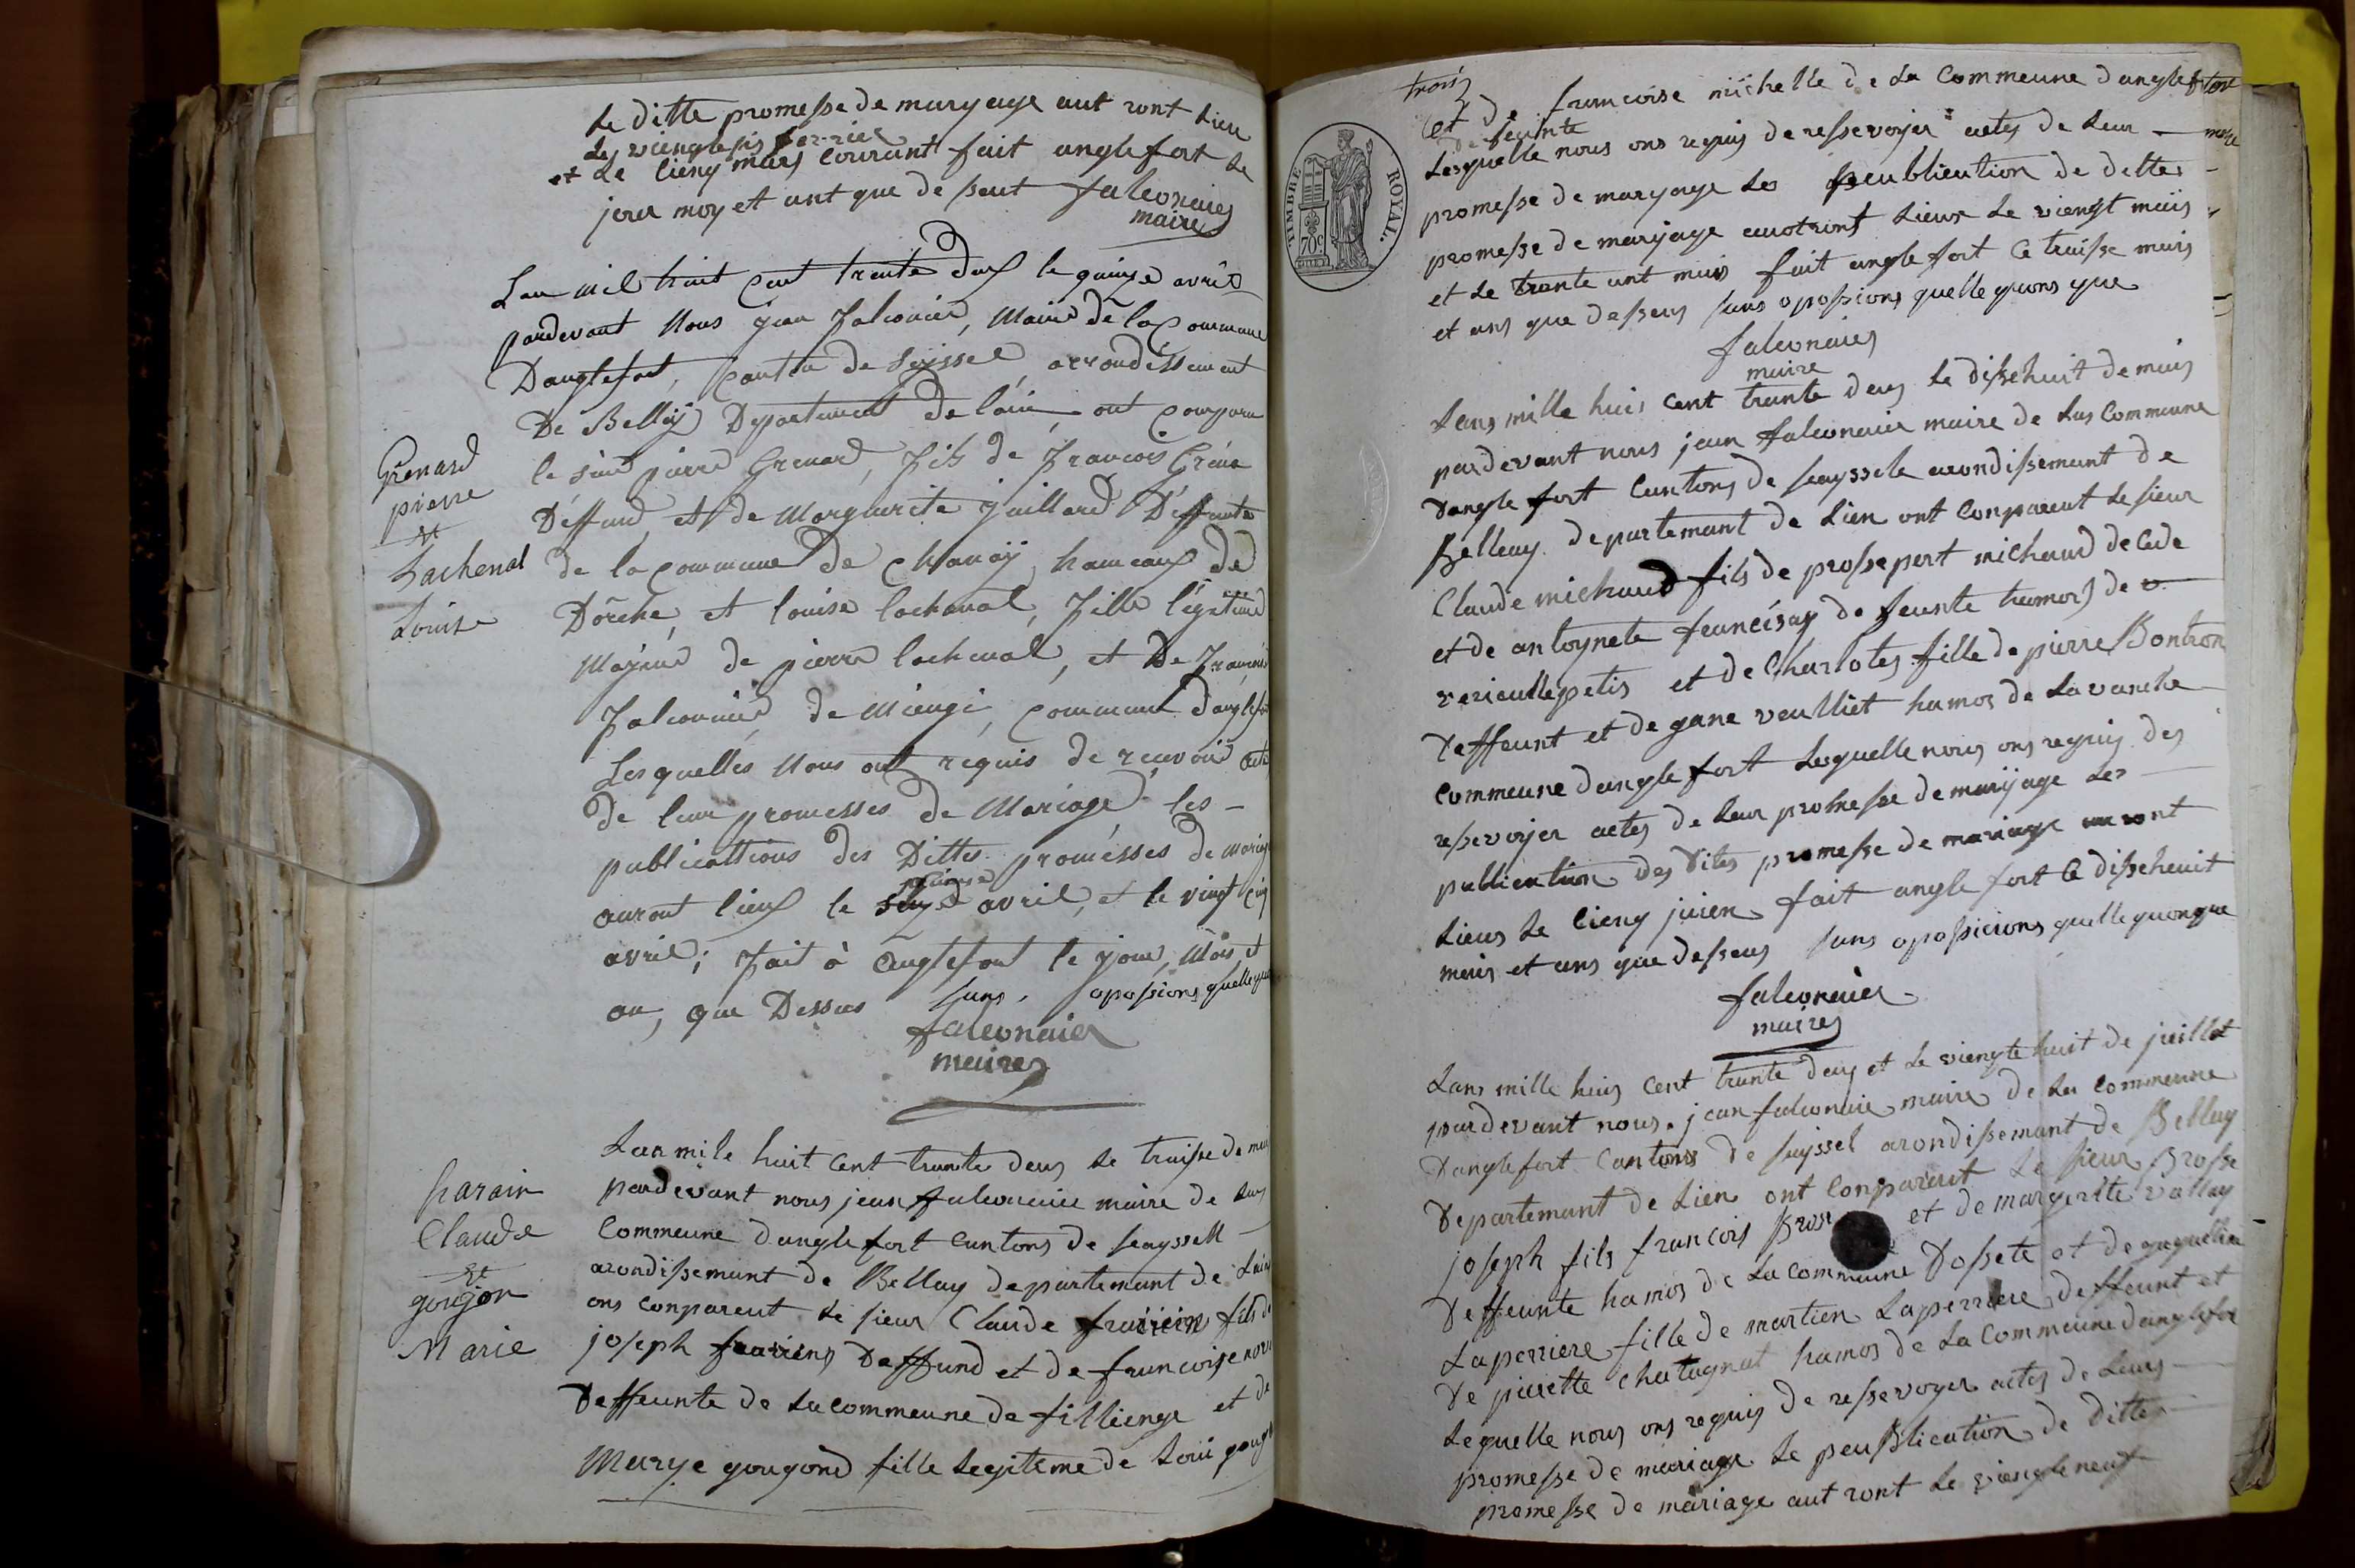 de ditte promesse de maryage aut ront lieu
Les viengtesis ferries
et Le cienq mars courant fait anglefort Le
jour moy et ant que de seut falconnies
maire
Lan mil huit Cent trente deux le quinze avril
pardevant Nous jean falconier, Maire de la Commune
Danglefort, Canton de Seyssel, arrondissement
De Belley Departement de l'ain, ont comparu
Grenard
pierre
et
Lachenal
Louise
le sieur pierre Grenard, fils de francois Grena
Déffund, et de Marguerite juillard Déffunte
de la commune de Chanaÿ, hameaux de
Dorche, et louise lachenal, fille légitime
Majeure de pierre lachenal, et De francoise
falconnier, de Miengé, commune d'anglefort
Lesquelles Nous ont requis de reçevoir acte
de leur promesses de Mariage les -
publicattions des Dittes promésses de Mariage
quinze
auront lieux le avril, et le vingt cinq
avril; fait à anglefort le jour, Mois, et
an, que Dessus sans oposions quelle que
falconaier
maires
farain
Claude
et
goujon
Marie
Lan mile huit cent trante deus Le traisse de mai
pardevant nous jean falconaier maire de Las
Commeune danglefort Cantons de seayssell
arondissemant de Bellay departemant de Lain
ons conpareut Le sieur Claude frairien fils de
joseph frairiens deffund et de francoise
deffeunte de La commeune de fillienge et de
Marye gougond fille Legiteme de Loui goug
trois
et de francoise michelle de La Commeune danglefort
de feunte
Lesquelle nous ons requis de ressevoyer actes de Leur — mere
promesse de maryage Les peublication de dittes -
promesse de maryage auotront Lieux Le viengt mais
et Le trante unt mais fait anglefort Ce traisse mais
et ans que desseus sans oposions quelle quons que
falconaies
maire
Lans mille huis cent trante deus Le dissehuit de mais
pardevant nous jean falconaier maire de Las Commeune
dangle fort Cantons de seayssele arondissemant de
Belleay departemant de Lien ont Conpareut Le sieur
Claude michaud fils de prossepert michaud de Cede
et de antoynete francisay de feunte hamos de v
verieullepetis et de Charlotes fille de pierre Bontron
deffeunt et de gane veulliet hamos de Lavanche
Commeune dangle fort Lesquelle nous ons requis des
ressevoyer actes de Leur promesse de maryage Les
publication des dites promesse de mariage auront
Lieus Le cienq juien fait angle fort Ce dissehuit
mais et ans que desseus sans opossicions quelle quonque
falconaier
maires
Lans mille huis Cent trante deus et Le viengtehuit de juillet
pardevant nous jean falconaie maire de La Commeune
danglefort Cantons de seyssel arondissemant de Bellay
departemant de Lien ont Conpareut Le sieur Brosse
joseph fils francois Bros et de margerite vallay
deffeunte hamos de La commeune dossete et de
Laperriere fille de martien Laperriere deffeunt et
de pierette Chatagnat hamos de La Commeune danglefor
Lequelle nous ons requis de ressevoyer actes de Leurs
promesse de mariage Le peublication de dittes
promesse de mariage aut ront Le viengteneuf
TIMBRE ROYAL.
70c